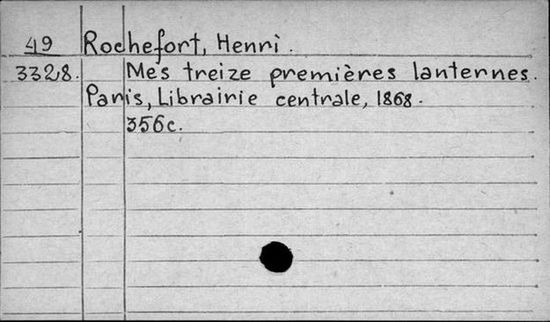 49 Rochefort, Henri.
3328. Mes treize premières lanternes.
Paris, Librairie centrale, 1868.
356c.